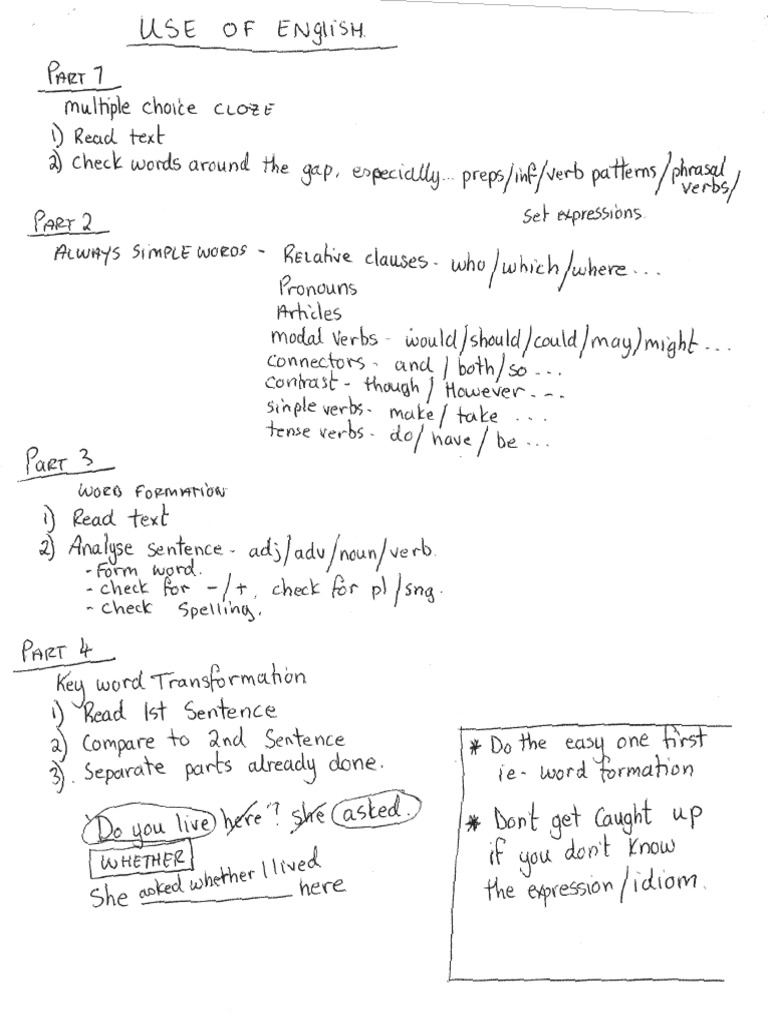 USE OF ENGLISH.
PART 1
multiple choice CLOZE
1) Read text
2) Check words around the gap, especially... preps/inf/verb patterns/phrasal verbs/
set expressions.
PART 2
ALWAYS SIMPLE WORDS - Relative clauses - who/which/where...
Pronouns
Articles
modal verbs - would/should/could/may/might...
connectors - and/both/so...
contrast - though/However...
simple verbs - make/take ...
tense verbs - do/have/be...
PART 3
WORD FORMATION
1) Read text
2) Analyse sentence - adj/adv/noun/verb.
- Form word.
- check for -/+, check for pl/sng.
- check spelling.
PART 4
Key word Transformation
1) Read 1st Sentence
2) Compare to 2nd Sentence
3). Separate parts already done.
"Do you live here"? she asked.
WHETHER
She asked whether I lived here
* Do the easy one first
ie- word formation
* Don't get caught up
if you don't know
the expression/idiom.